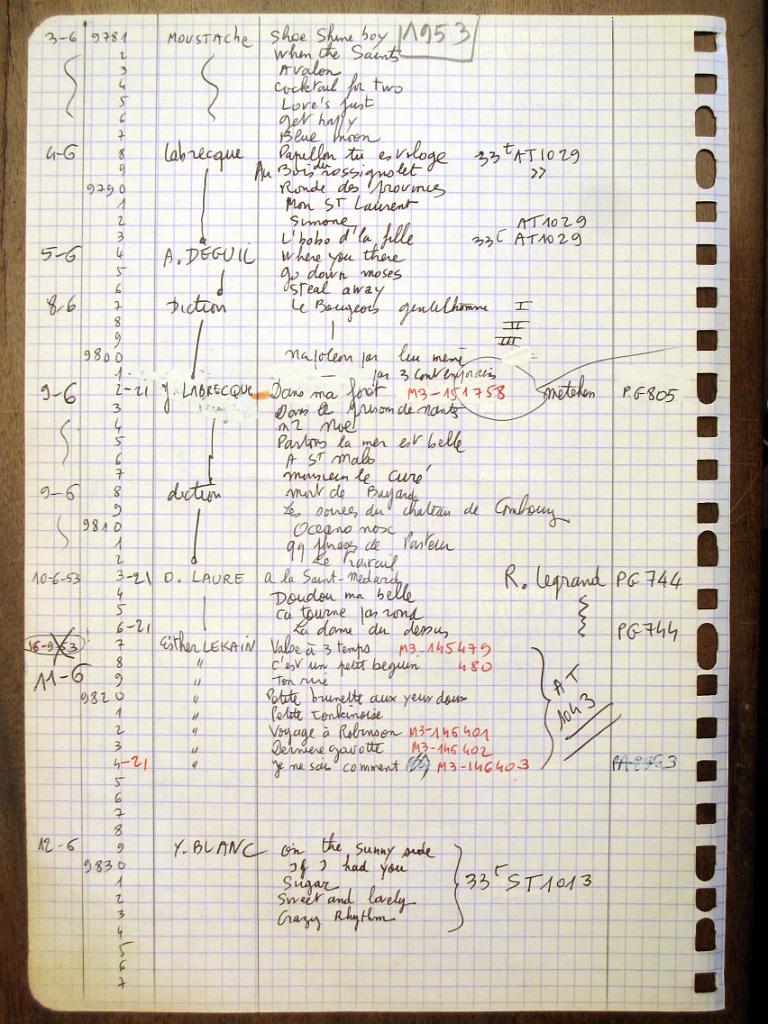 3-6 9781 MOUSTAChe Shoe Shine boy 1953
2 When the Saints
3 Avalon
4 Cocktail for two
5 Love's just
6 get happy
7 Blue moon
4-6 8 Labrecque Papillon tu es volage 33t AT1029
9 Au Bois du rossignolet "
9790 Ronde des provinces
1 Mon ST Laurent
2 Simone AT1029
3 L'bobo d'la fille 33t AT1029
5-6 4 A. DEGUIL Where you there
5 go down moses
6 Steal away
8-6 7 Diction Le Bourgeois gentilhomme I
8 II
9 III
9800 Napoleon par lui meme
1 par 3 contemporains
9-6 2-21 J. LABRECQUE Dans ma foret M3-151758 metehen PG805
3 Dans le prison de nants
4 n2 Noe
5 Partons la mer est belle
6 A ST Malo
7 monsieur le Curé
9-6 8 diction mort de Bayard
9 Les soirees du chateau de Combourg
9810 Oceano nox
1 99 images de Pasteur
2 Le travail
10-6-53 3-21 O. LAURE a la Saint-Medard R. Legrand PG744
4 Doudou ma belle
5 Ca tourne pas rond
6-21 La dame du dessus PG744
16-9-53 7 Esther LEKAIN Valse à 3 temps M3-145479
11-6 8 " c'est un petit beguin 480
9 " Ton
9820 " Petite brunette aux yeux doux AT 1043
1 " Petite tonkinoise
2 " Voyage à Robinson M3-146401
3 " Derniere gavotte M3-146402
4-21 " Je ne sais comment M3-146403
5
6
7
8
12-6 9 Y. BLANC On the sunny side
9830 If I had you
1 Sugar 33t ST1013
2 Sweet and lovely
3 Crazy Rhythm
4
5
6
7